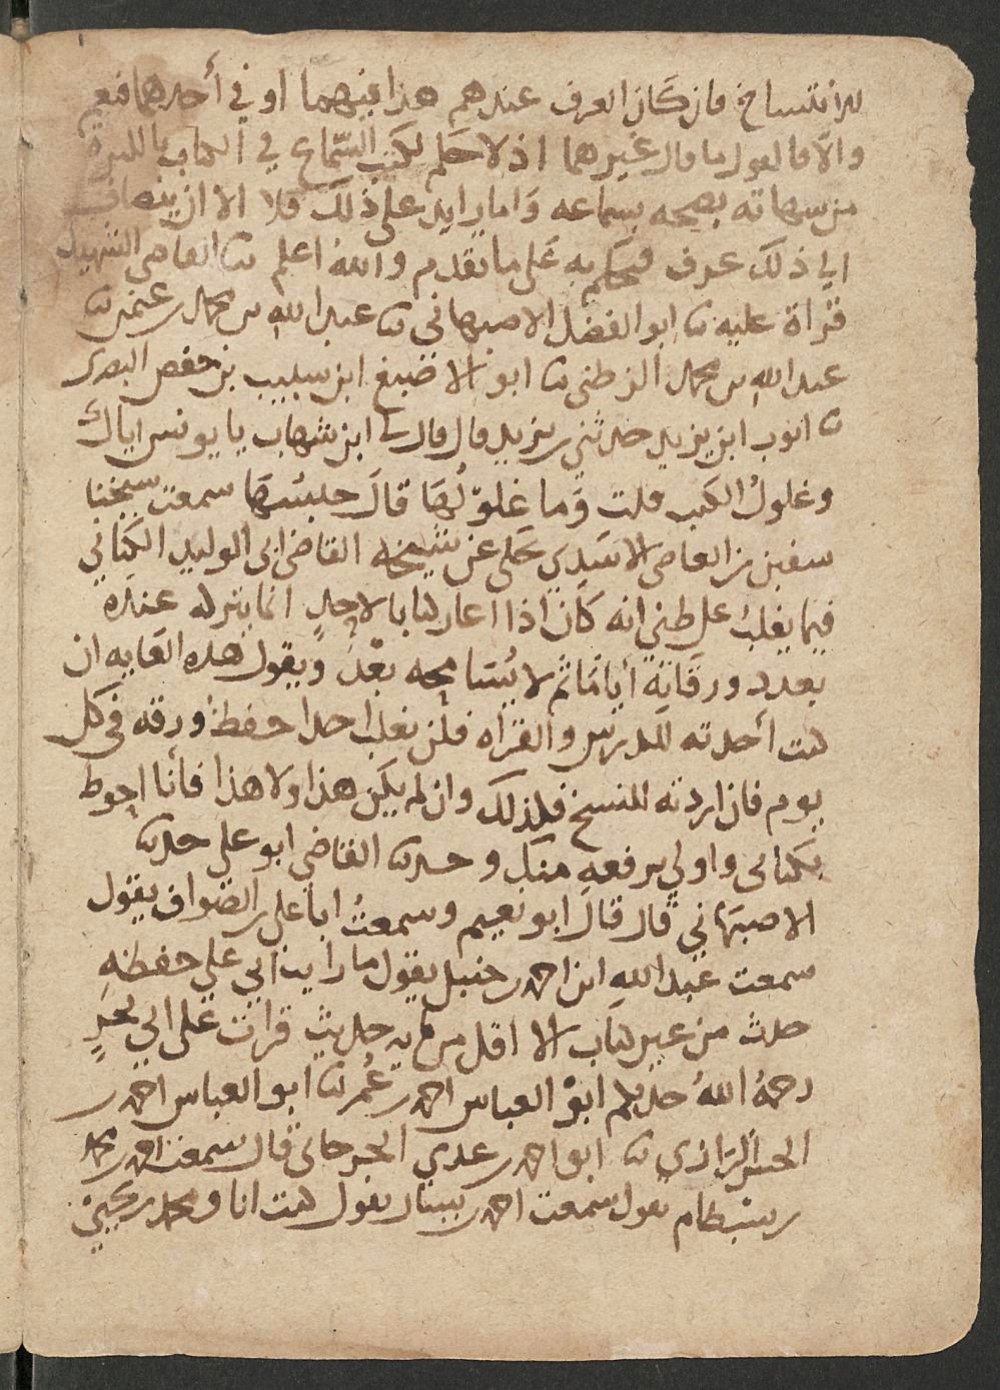 للانتساخ فان كان العرف عندهم هذا فيهما او في أحدهما فنعم
والا فالقول ما قال غيرهما اذ لا حكم لكتب السماع في الكتاب بالكبرة
من شهاته بصحه بسماعه واما زايد على ذلك فلا الا ان ينضاف
الى ذلك عرف فيحكم به على ما تقدم والله اعلم نا القاضي الشهيد
قراة عليه نا ابو الفضل الاصبهاني نا عبد الله بن محمد بن عثمن نا
عبد الله بن محمد نا ابو الاصبغ ابن سبيب بن حفص البصرى
نا ايوب ابن يزيد حدثني يزيد قال قال لي ابن شهاب يا يونس اياك
وغلول الكتب قلت وما غلولها قال حبسها سمعت شيخنا
سفين بن العاصي الاسدي يحكى عن شيخه القاضي ابى الوليد الكناني
فيما يغلب على ظني انه كان اذا اعار كتابا لاحد انما يتركه عنده
بعدد ورقاته أياما ثم لا يسامحه بعد ويقول هده الغايه ان
كنت أخدته للدرس والقراه فلن يغلب احدا حفظ ورقه في كل
يوم فان اردته للنسخ فكذلك وان لم يكن هذا ولا هذا فأنا احوط
بكتابى واولى برفعه منك وحدثنا القاضي ابو علي حدثنا
الاصبهاني قال قال ابو نعيم وسمعت ابا على بن الصواف يقول
سمعت عبد الله ابن احمد بن حنبل يقول ما رايت ابي على حفظه
حدث من غير كتاب الا اقل من مايه حديث قرات على ابي بحر
رحمه الله حدثكم ابو العباس احمد بن عمر نا ابو العباس احمد بن
الحسن الرازي نا ابو احمد بن عدي الجرجانى قال سمعت احمد بن محمد
بن بسطام يقول سمعت احمد بن سيار يقول كنت انا ومحمد بن يحيى